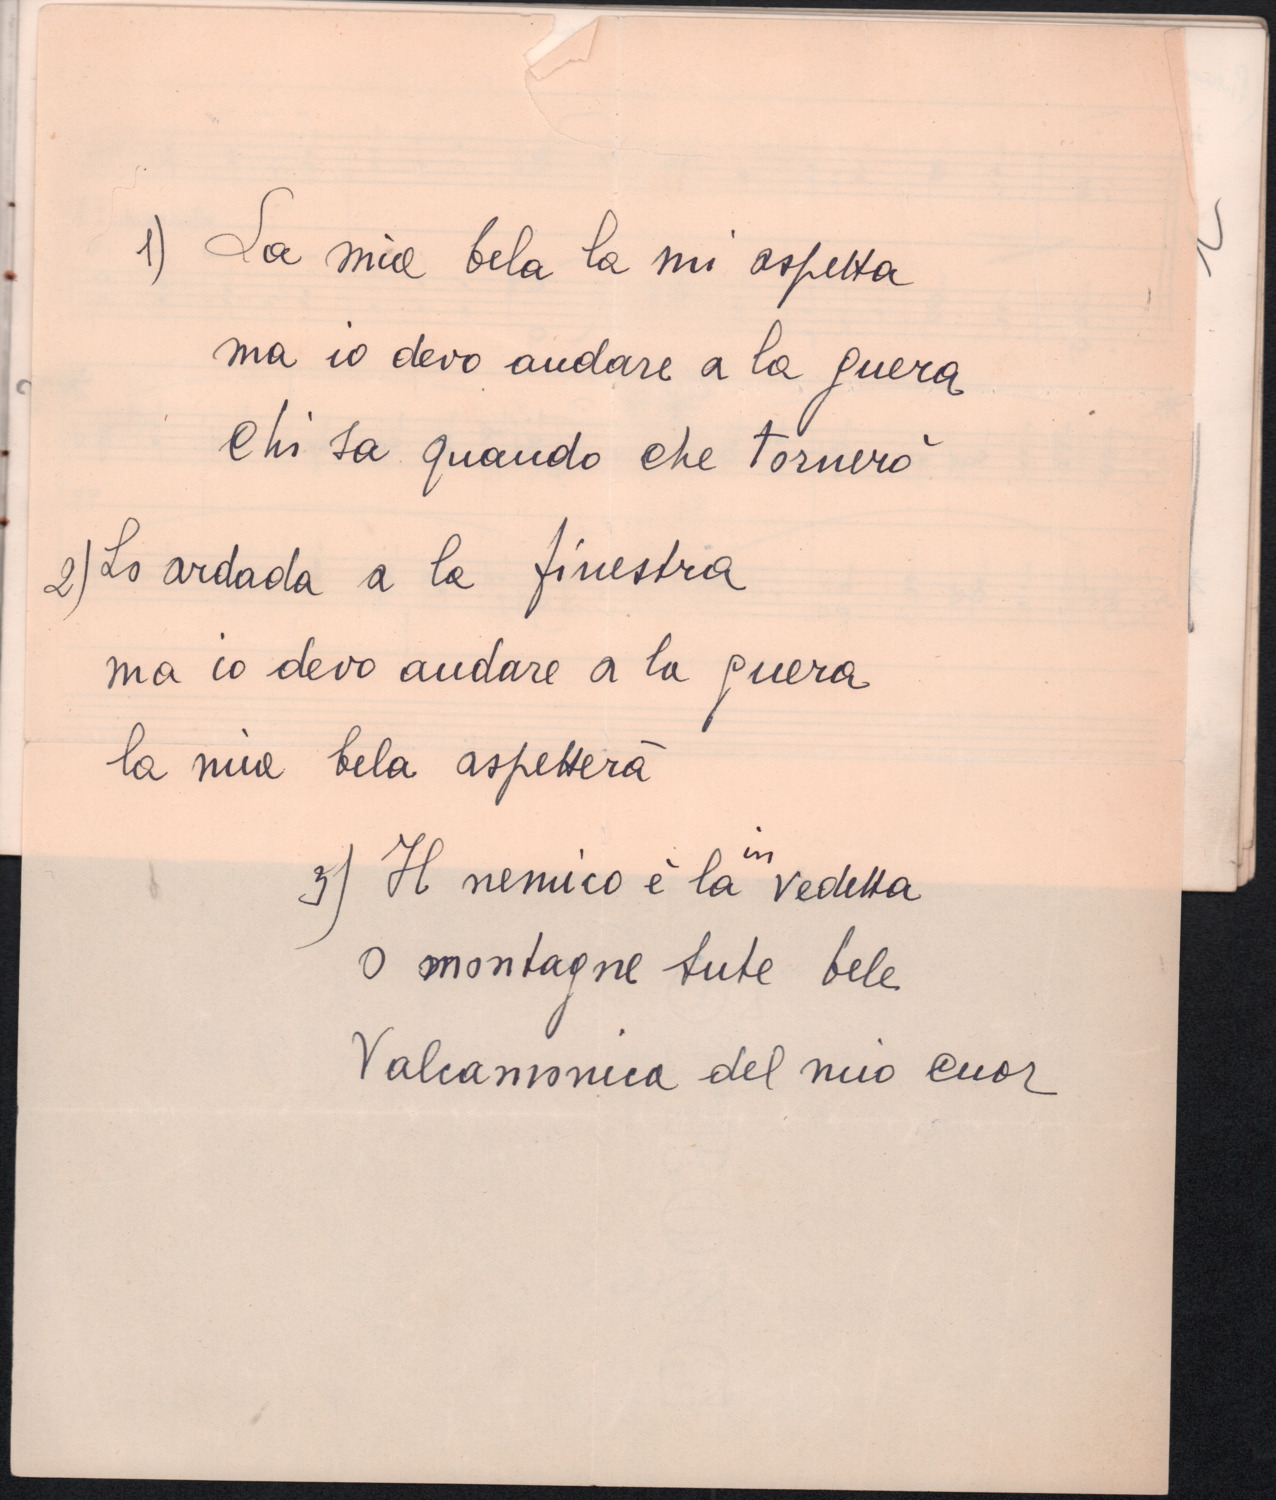 1) La mia bela la mi aspetta
ma io devo andare a la guera
Chi sa quando che tornerò
2) Lo ardada a la finestra
ma io devo andare a la guera
la mia bela aspetterà
3) Il nemico è la in vedetta
o montagne tute bele
Valcamonica del mio cuor